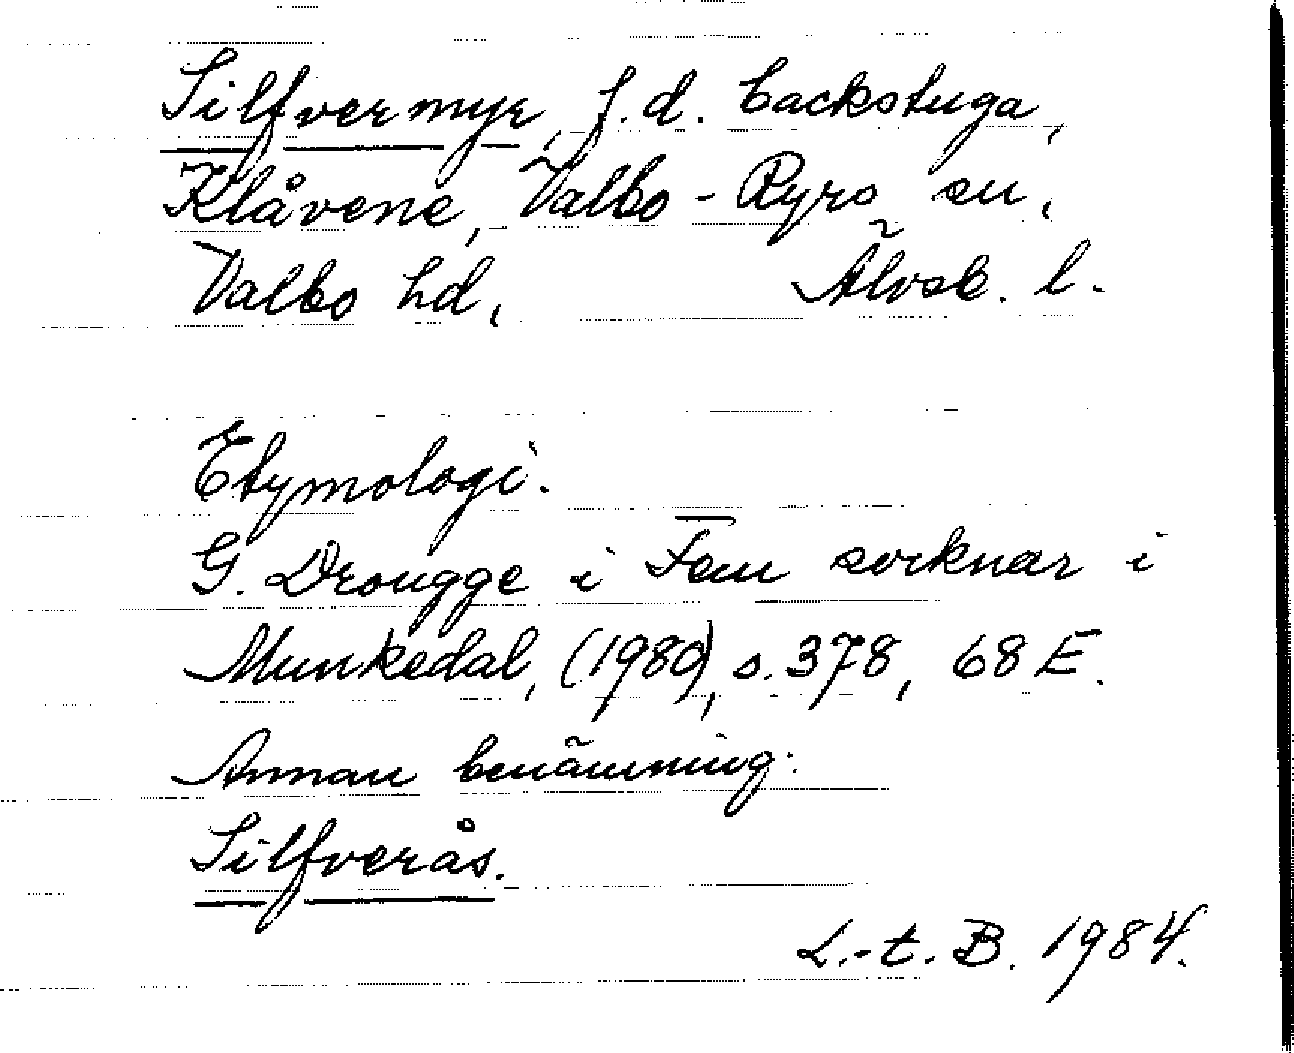 Silfvermyr, f.d. backstuga,
Klåvene, Valbo-Ryrs sn,
Valbo hd, Älvsb. l.
Etymologi.
G. Drougge i Fem socknar i
Munkedal, (1980), s. 378, 68 E.
Annan benämning:
Silfverås.
L.-t. B. 1984.